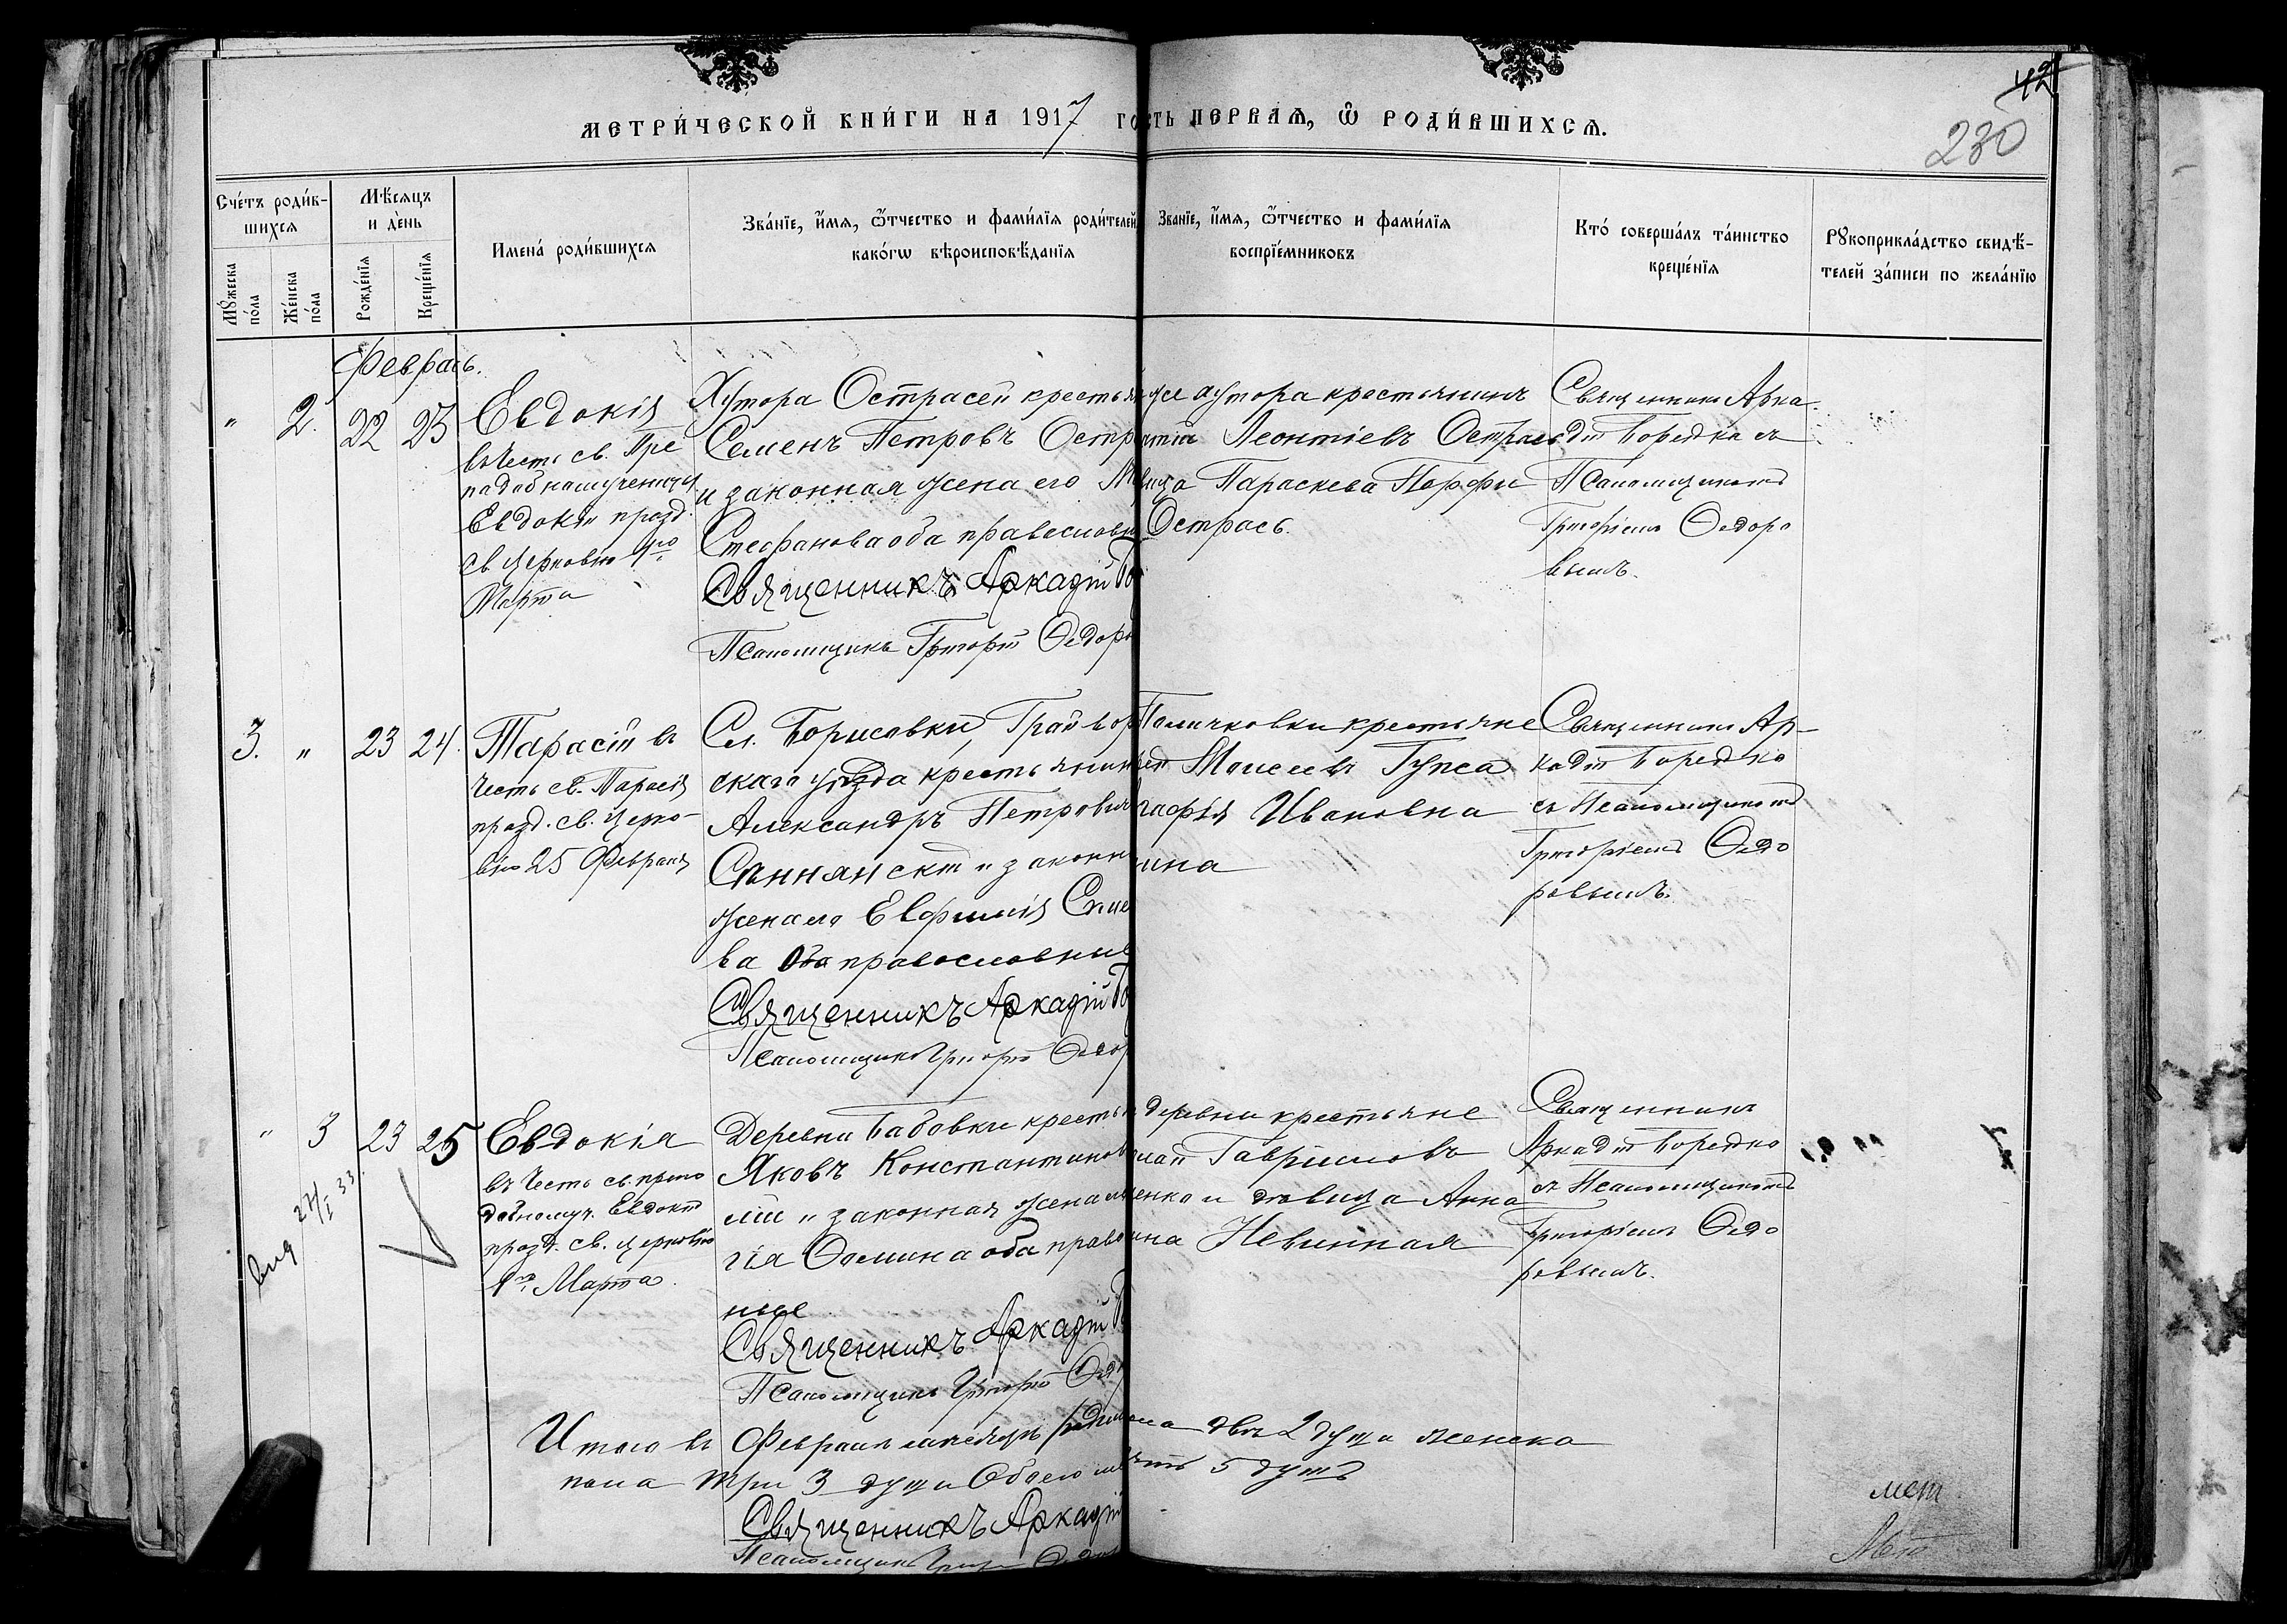 42
230
МЕТРИ́ЧЕСКОЙ КНИ́ГИ НА 1917 ГО СТЬ ПЕРВАѦ, Ѽ РОДИ́ВШИХСѦ.
Сче́тъ роди́в-
шихсѧ
Мѣ́сѧцъ
и де́нь
Имена́ роди́вшихсѧ
Зва́нїе, и҆́мѧ, ѻ҆́тчество и фами́лїѧ роди́телей
како́гѡ вѣроисповѣ́данїѧ
Зва́нїе, и҆́мѧ, ѻ҆́тчество и фами́лїѧ
воспрїе́мниковъ
Кто́ соверша́лъ та́инство
креще́нїѧ
Рꙋкоприкла́дство свидѣ́-
телей за́писи по жела́нїю
Мꙋ́жеска
по́ла
Же́нска
по́ла
Рожде́нїѧ
Креще́нїѧ
Февраль.
" 2. 22 23
Евдокія
въ честь св. Пре
подобномученицы
Евдокіи празд.
св. церковію 1го
Марта
Хутора Острасей крестья
Семенъ Петровъ Остр
и законная жена его М
Стефанова оба православн
Священникъ Аркадій Бо
Псаломщикъ Григорій Ѳедоро
же хутора крестьянинъ
Леонтіевъ Острась
вица Параскева Порфи
Острась.
Священникъ Арка
дій Бородко съ
Псаломщикомъ
Григоріемъ Ѳедоро
вымъ.
3. " 23 24.
Тарасій въ
честь св. Тарасія
празд. св. церко-
вію 25 Февраля
Сл. Борисовки, Грайвор
скаго уѣзда крестьянин
Александръ Петрович
и законн
жена его Евфимія
ва оба православные
Священникъ Аркадій Бо
Псаломщикъ Григорій Ѳедо
крестьяне
Моисеевъ Гупса
гафія Ивановна
ина
Священникъ Ар-
кадій Бородко
съ Псаломщикомъ
Григоріемъ Ѳедо
ровымъ.
" 3 23 25
вид 24/I 33
Евдокія
въ честь св. препо
добномуч. Евдокіи
празд. св. церковію
1го Марта.
Деревни Бабовки кресть
Яковъ Константинов
и законная жена
гія Ѳомина оба право
ные
Священникъ Аркадій Б
Псаломщикъ Григорій Ѳед
деревни крестьяне
Гавриловъ
енко и дѣвица Анна
ина Невинная
Священникъ
Аркадій Бородко
съ Псаломщикомъ
Григоріемъ Ѳедо
ровымъ.
Итого въ Февралѣ мѣсяцѣ родилось два 2 душа женска
пола три 3 души Обоего пять 5 душъ
Священникъ Аркадій
Псаломщикъ